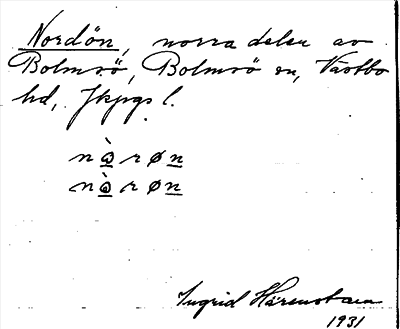 Nordön, norra delen av
Bolmsö, Bolmsö sn, Västbo
hd, Jkpgs l.
nɔ̀røn
nɔ̀røn
Ingrid
1931